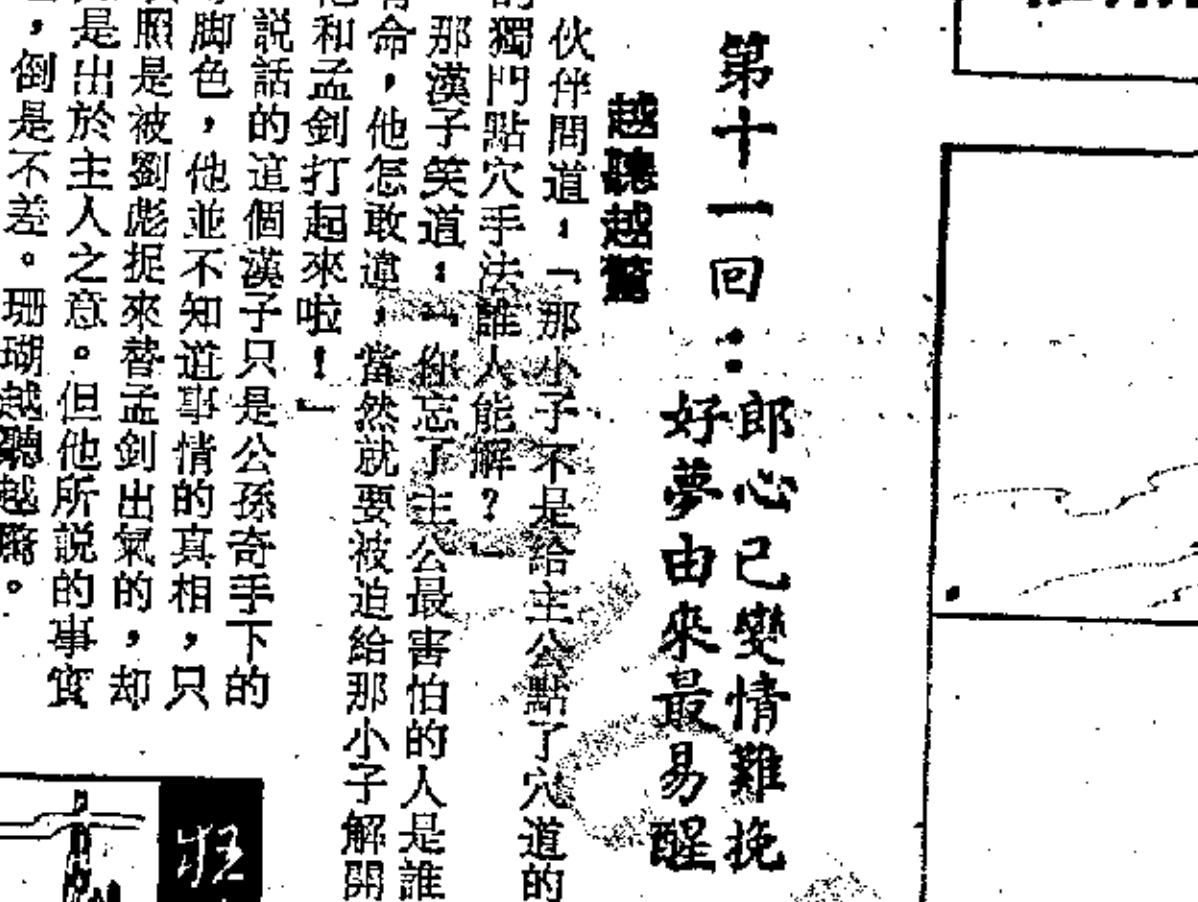 第十一回：郎心已變情難挽
好夢由來最易醒
越聽越驚
伙伴問道：「那小子不是給主公點了穴道的
獨門點穴手法誰人能解？」
那漢子笑道：「你忘了主公最害怕的人是誰
命，他怎敢違，當然就要被迫給那小子解開
和孟釗打起來啦！」
説話的這個漢子只是公孫奇手下的
脚色，他並不知道事情的真相，只
照是被劉彪捉來替孟釗出氣的，却
是出於主人之意。但他所説的事實
，倒是不差。珊瑚越聽越驚。
狂